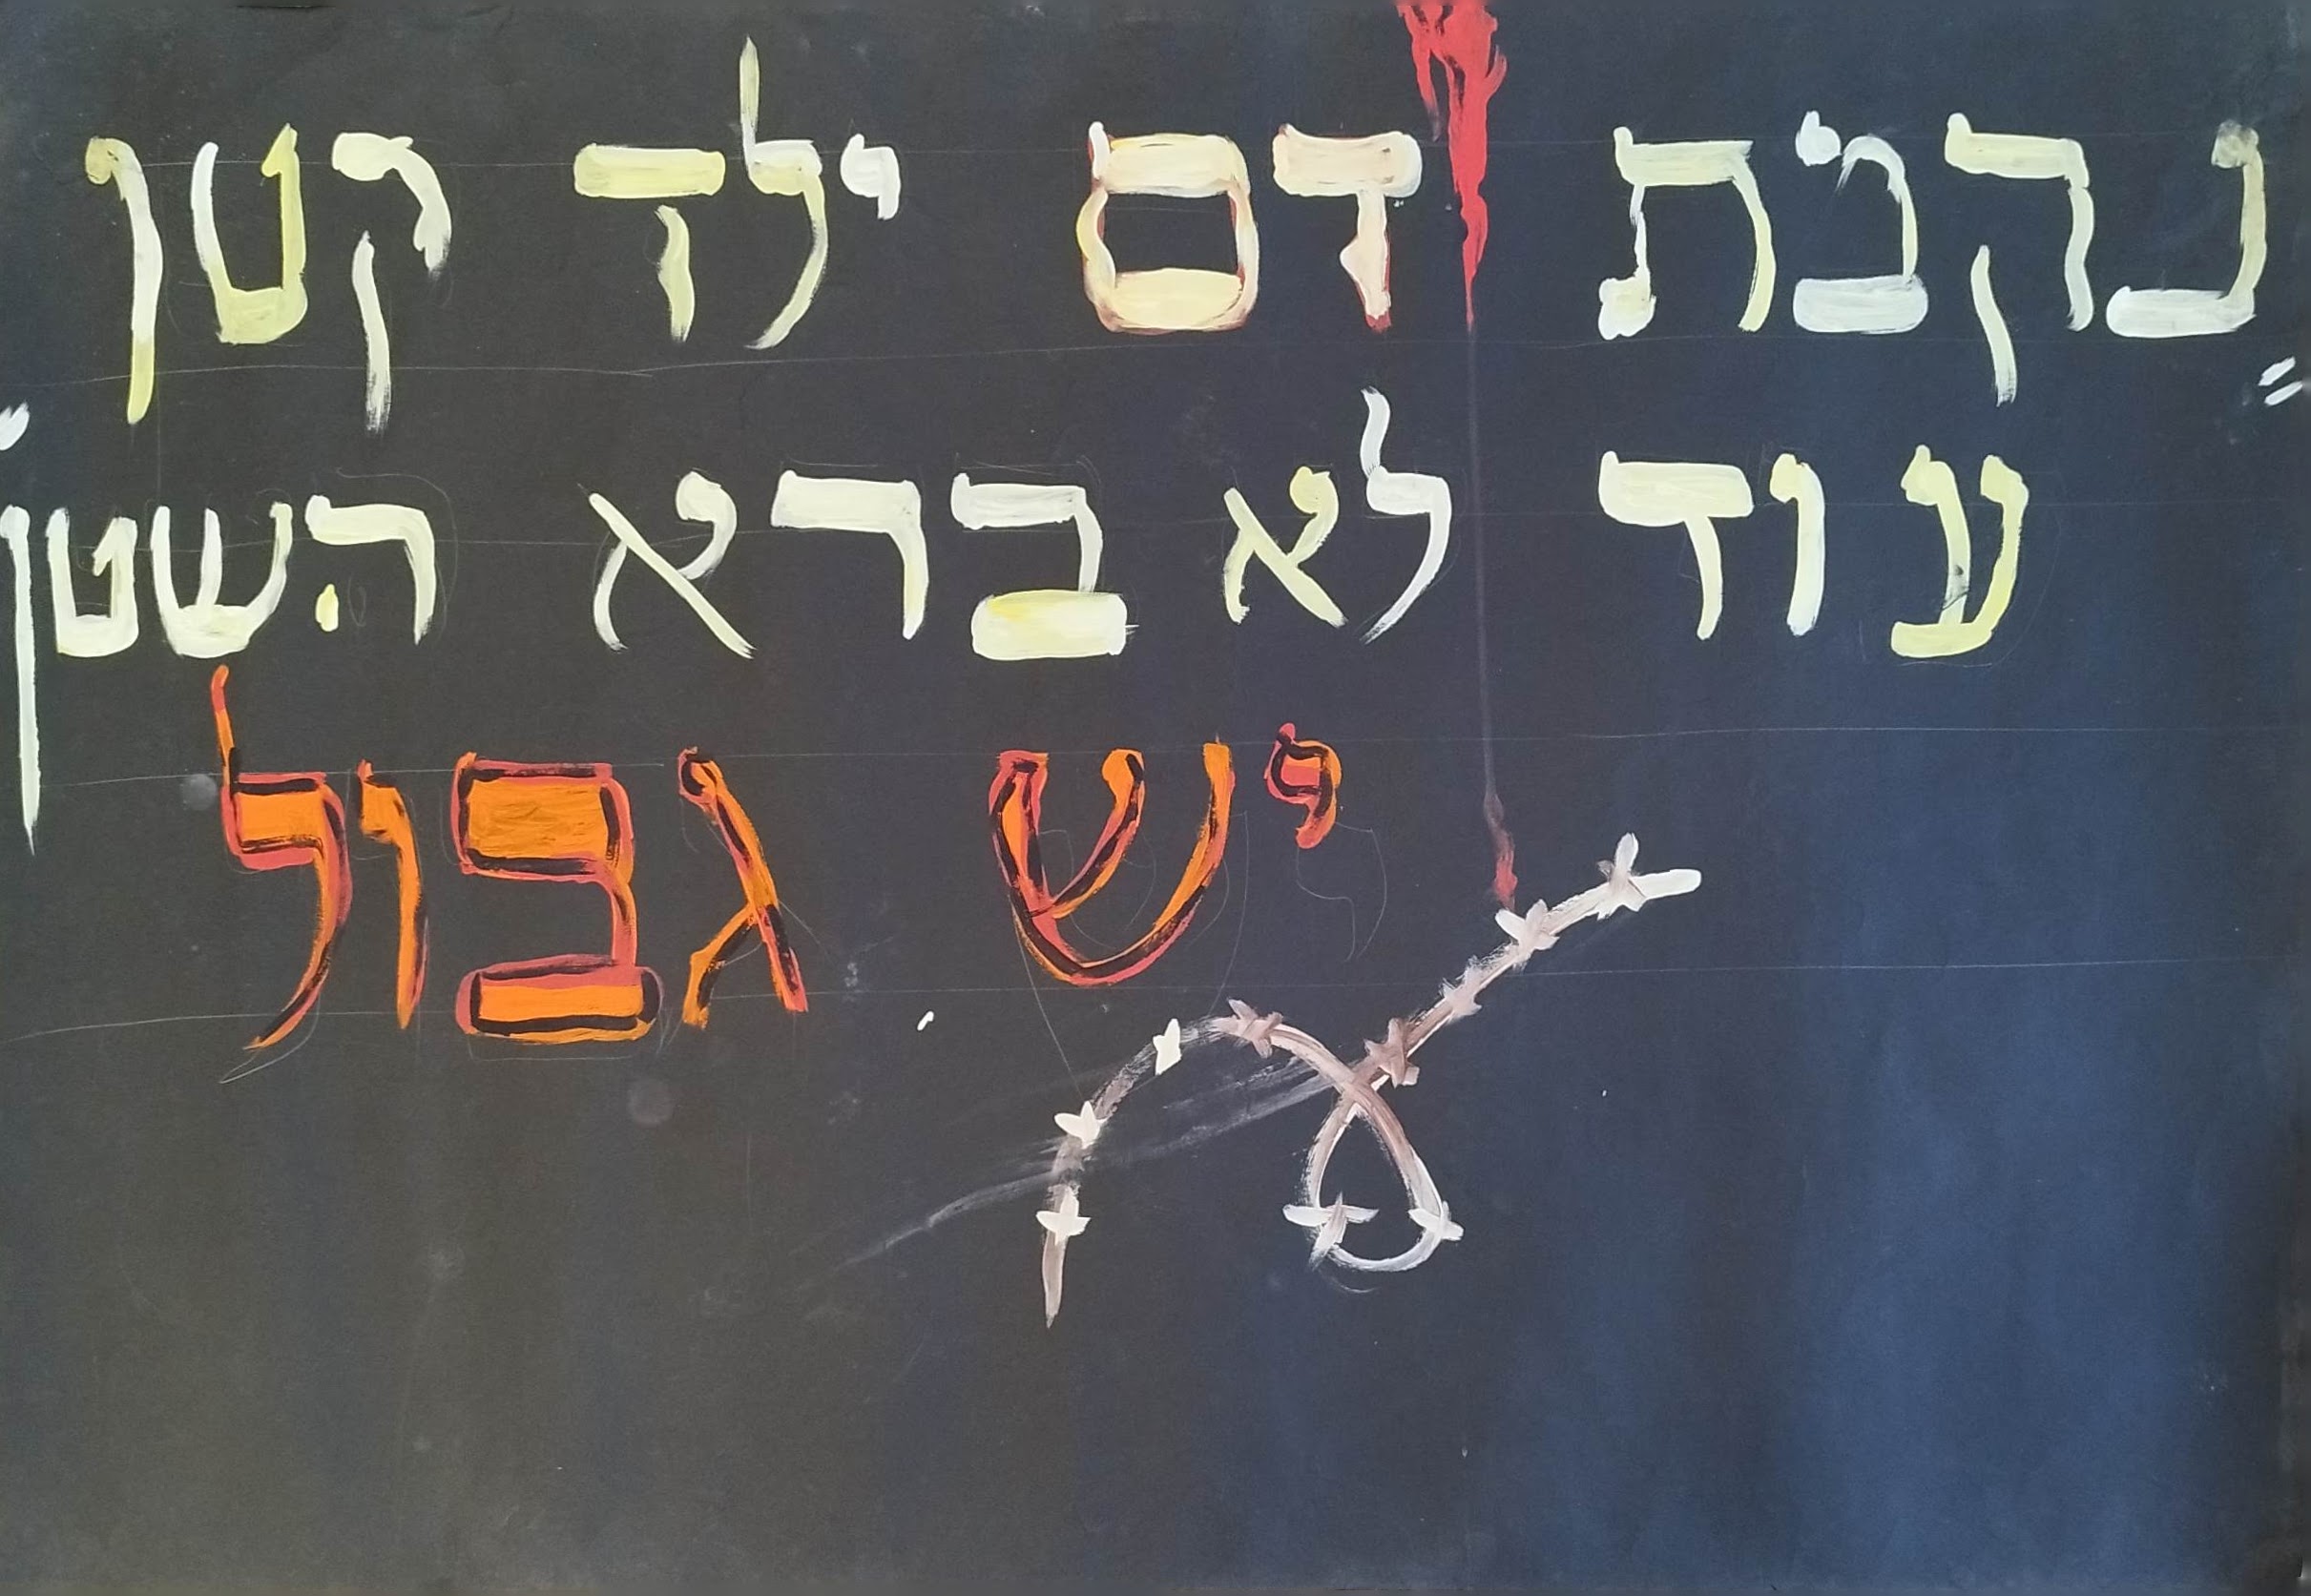 "נקמת דם ילד קטן
עוד לא ברא השטן"
יש גבול